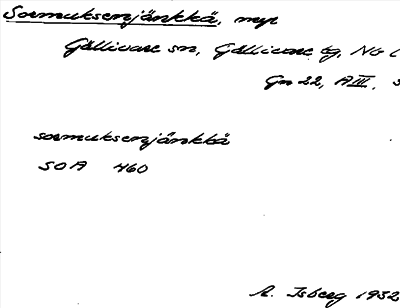 Sormuksenjänkkä, myr
Gällivare sn, Gällivare tg, Nb l
Gn 22, A III, s
sormuksenjänkkä
SOA 460
A. Isberg 1932